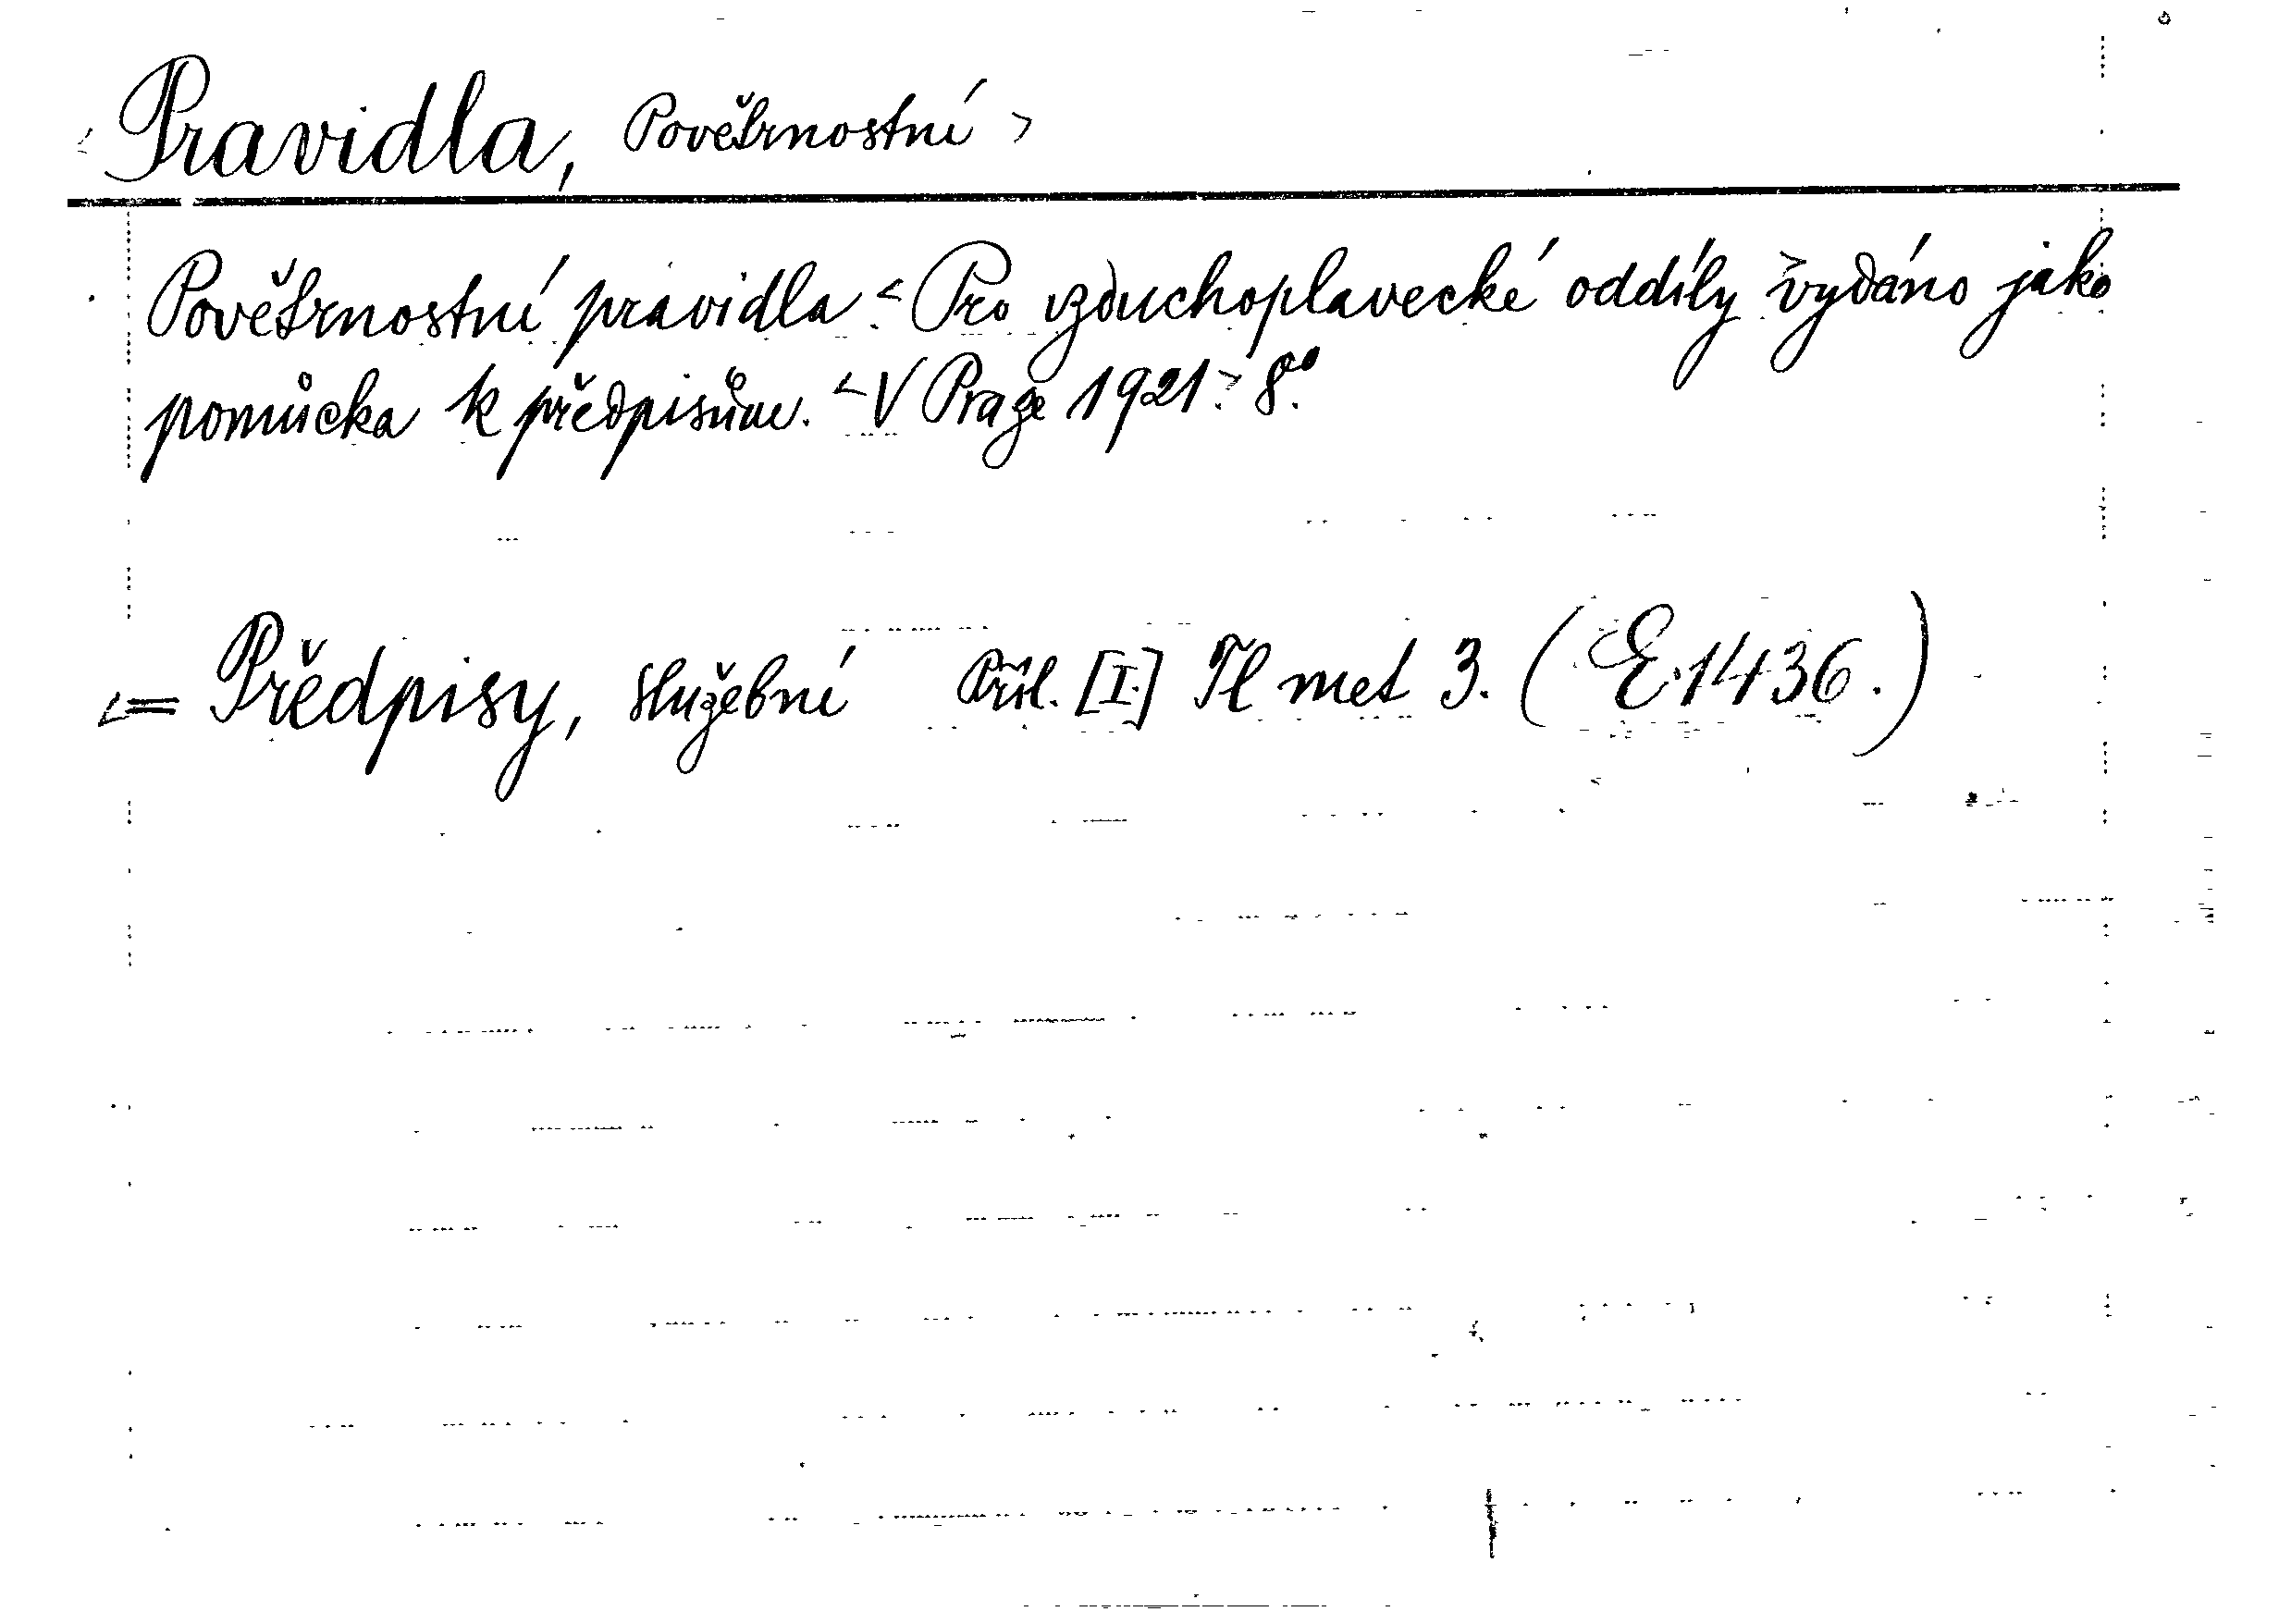 < Pravidla, Povětrnostní >
Povětrnostní pravidla < Pro vzduchoplavecké oddíly > vydáno jako
pomůcka k předpisům. < V Praze 1921. > 8°.
<= Předpisy, služební Příl. [I.] Tl met 3. (E.1436.)